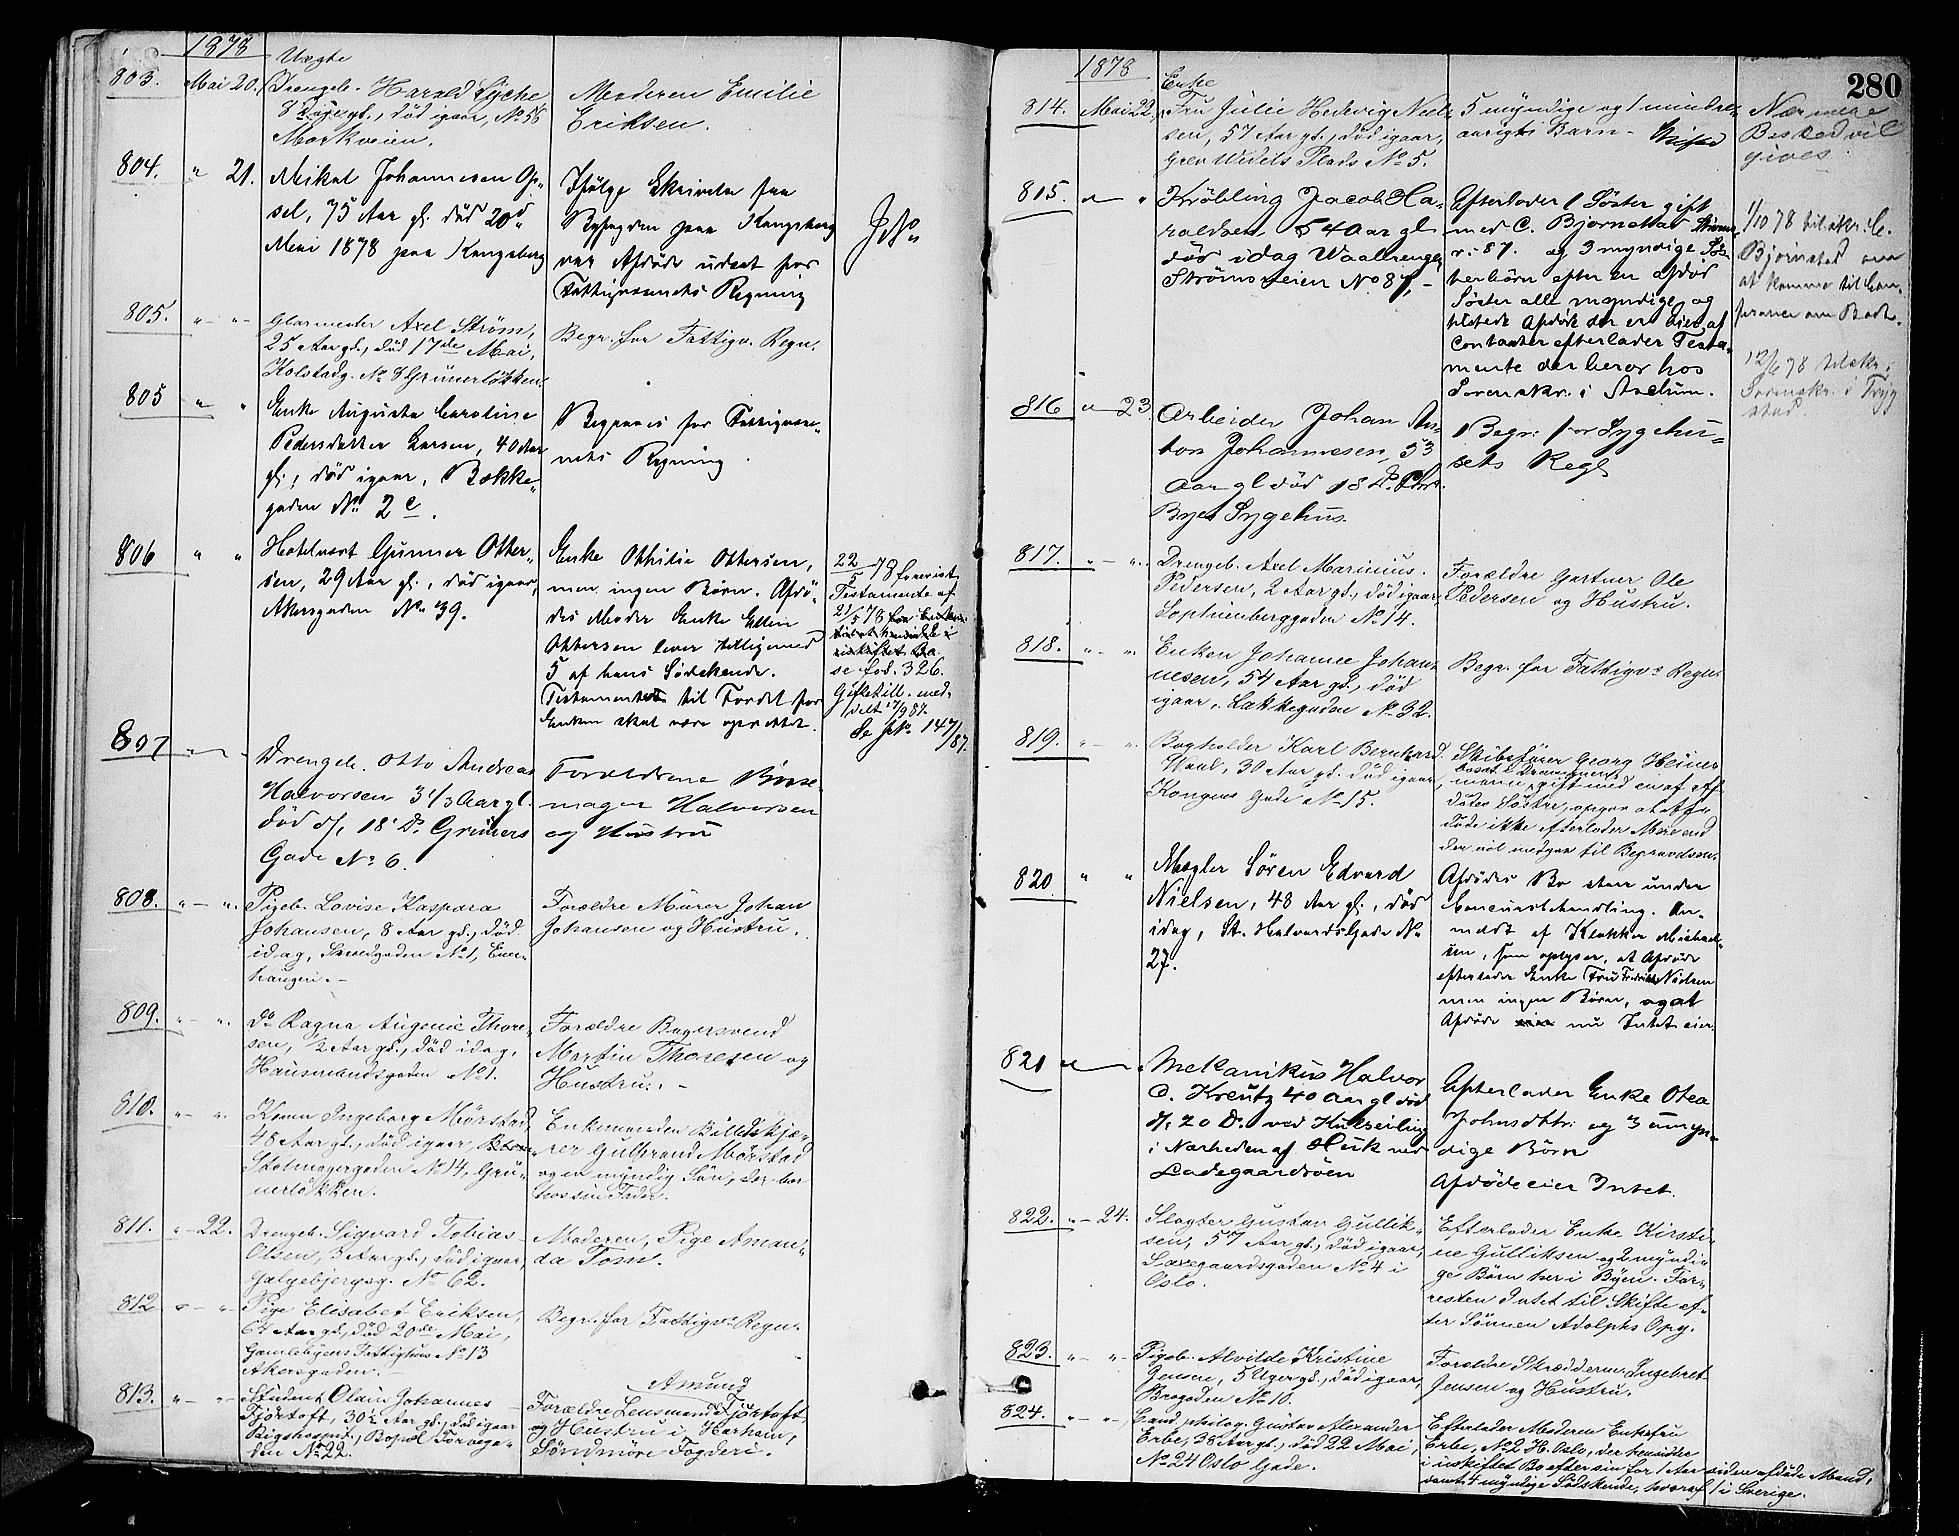 1878
Uægte
803. Mai 20. Drengeb. Harald Lyche Moderen Emilie
8 Dage gl., død igaar, No 56 Eriksen.
Markveien.
804. " 21. Mikal Johannesen Op-
sel, 75 Aar gl. død 20de
Mai 1878 paa Kongsberg
Ifølge Skrivelse fra
Byfogden paa Kongsberg
var Afdøde udsat for
Fattigvæsenets Regning
805. " - " Glarmester Axel Strøm,
25 Aar gl., død 17de Mai,
Kolstadg. No 8 Grünerløkken.
Begr. for Fattigv. Regn.
805 " " Enke Augusta Caroline
Pedersdatter Larsen, 40 Aar
gl., død igaar, Bække-
gaden No 2 c.
Begraves for Fattigvæse-
nets Regning
806 " " Hotelvært Gunner Otter-
sen, 29 Aar gl., død igaar,
Akersgaden No 39.
Enke Othilie Ottersen,
men ingen Børn. Afdø-
des Moder Enke Ellen
Ottersen lever tilligemed
5 af hans Sødskende.
Testamente til Fordel for
Enken skal være oprettet.
22/5 78 forevist
Testamente af
21/5 78
se fol. 326.
Giftetill. med-
delt 17/9 87.
Se J No 147/87.
807 " - " Drengeb. Otto Andreas
Halvorsen 3 1/3 Aar gl.
død d/ 18 Ds. Grüners
Gade No 6.
Forældrene Børse-
mager Halvorsen
og Hustru
808. " - ". Pigeb. Lovise Kaspara
Johansen, 8 Aar gl., død
idag, No 1, Ener-
haugen. -
Forældre Murer Johan
Johansen og Hustru.
809. " - ". Do Ragna Augenie Thore-
sen, 2 Aar gl., død idag,
Hausmandsgaden No 1.
Forældre Bagersvend
Martin Thoresen og
Hustru. -
810. " - ". Konen Ingeborg Mørstad,
48 Aar gl., død igaar,
Skolmagergaden No 14, Grü-
nerløkken.
Enkemanden Billedskjæ-
rer Gulbrand Mørstad
og en myndig Søn, der bor
hos sin Fader.
811. " - 22. Drengeb. Sigvard Tobias
Olsen, 3 Aar gl., død igaar,
Galgebjergsg. No 62.
Moderen, Pige Aman-
da Tom.
812 " - " Pige Elisabet Eriksen,
64 Aar gl., død 20de Mai,
Gamlebyens Fattighus No 13
Akersgaden.
Begr. for Fattigvs Regn.
813. " - " Student Olaus Johannes
Fjørtoft, 30 1/2 Aar gl., død igaar
Rigshospit., Bopæl Torvega-
den No 22.
Amund
Forældre Lensmand Fjørtoft
og Hustru i Harham,
Søndmøre Fogderi.
280
1878
Enke
814. Mai 22. Fru Julie Hedevig Niel-
sen, 57 Aar gl., død igaar,
Grev Wedels Plads No 5.
5 myndige og 1 mindre-
aarigt Barn -
Nærmere
Besked vil
gives.
815. " - " Frøbling Jacob Ha-
raldsen 54 Aar gl
død idag Waalrengen
Strømsveien No 87. -
Efterlader 1 Søster gift
med C. Bjørnstad Strøms-
v. 87. og 3 myndige Sø-
sterbørn efter en afdød
Søster alle myndige og
Afdøde der er eier af
Contanter efterlader Testa-
mente der beror hos
Sorenskr. i Askim.
1/10 78 tilskr. C.
Bjørnstad om
at komme til Con-
ference om Bodet.
12/6 78 tilskr.
Sorenskr. i Tryg-
stad.
816 " - 23. Arbeider Johan An-
ton Johannesen, 53
Aar gl død 18 Ds. Chra.
Byes Sygehus.
Begr. for Sygehu-
sets Regl
817. " - ". Drengeb. Axel Marinius
Pedersen, 2 Aar gl., død igaar,
Sophienberggaden No 14.
Forældre Gartner Ole
Pedersen og Hustru.
818. " - " Enken Johanne Johan-
nesen, 54 Aar gl., død
igaar, Lakkegaden No 32.
Begr. for Fattigvs Regn.
819. " - ". Bogholder Karl Bernhard
Waul, 30 Aar gl. død igaar,
Kongens Gade No 15.
Skibsfører Georg Heiner-
mann, gift med en af Af-
dødes Søstre, opgav at Af-
døde ikke efterlader Mere end
der vil medgaa til Begravelsen.
820 " " Mægler Sören Edvard
Nielsen, 48 Aar gl., død
idag, St. Halvards Gade No
27.
Afdødes Bo staar under
Concursbehandling. An-
meldt af Klokker Michael-
sen, som oplyser, at Afdøde
efterlader Enke Fru Nielsen
men ingen Børn, og at
Afdøde nu Intet eier.
821 " - Mekanikus Halvor
C. Kreutz 40 Aar gl død
d/ 20 Ds. ved Kulseiling
i Nærheden af Huk ved
Ladegaardsøen
Efterlader Enke Otea
Johnsdttr. og 3 umyn-
dige Børn
Afdøde eier Intet.
822. " - 24. Slagter Gustav Gullik-
sen, 57 Aar gl., død igaar,
Saxegaardsgaden No 4 i
Oslo.
Efterlader Enke Kirsti-
ne Gulliksen og 2 myndi-
ge Børn her i Byen. For-
resten Intet til Skifte ef-
ter Sønnen Adolphs Opg.
823. " - " Pigeb. Alvilde Kristine
Jensen, 5 Uger gl., død igaar,
Brogaden No 10.
Forældre Skrædderm. Ingebret
Jensen og Hustru.
824. " - ". Cand. philog. Gustav Alexander
Erbe, 38 Aar gl., død 22 Mai,
No 24 Oslo Gade.
Efterlader Moderen Enkefru
Erbe, No 2 H. Oslo, der hensidder
i uskiftet Bo efter sin for 1 Aar siden afdøde Mand,
samt 4 myndige Sødskende, hvoraf 1 i Sverige.